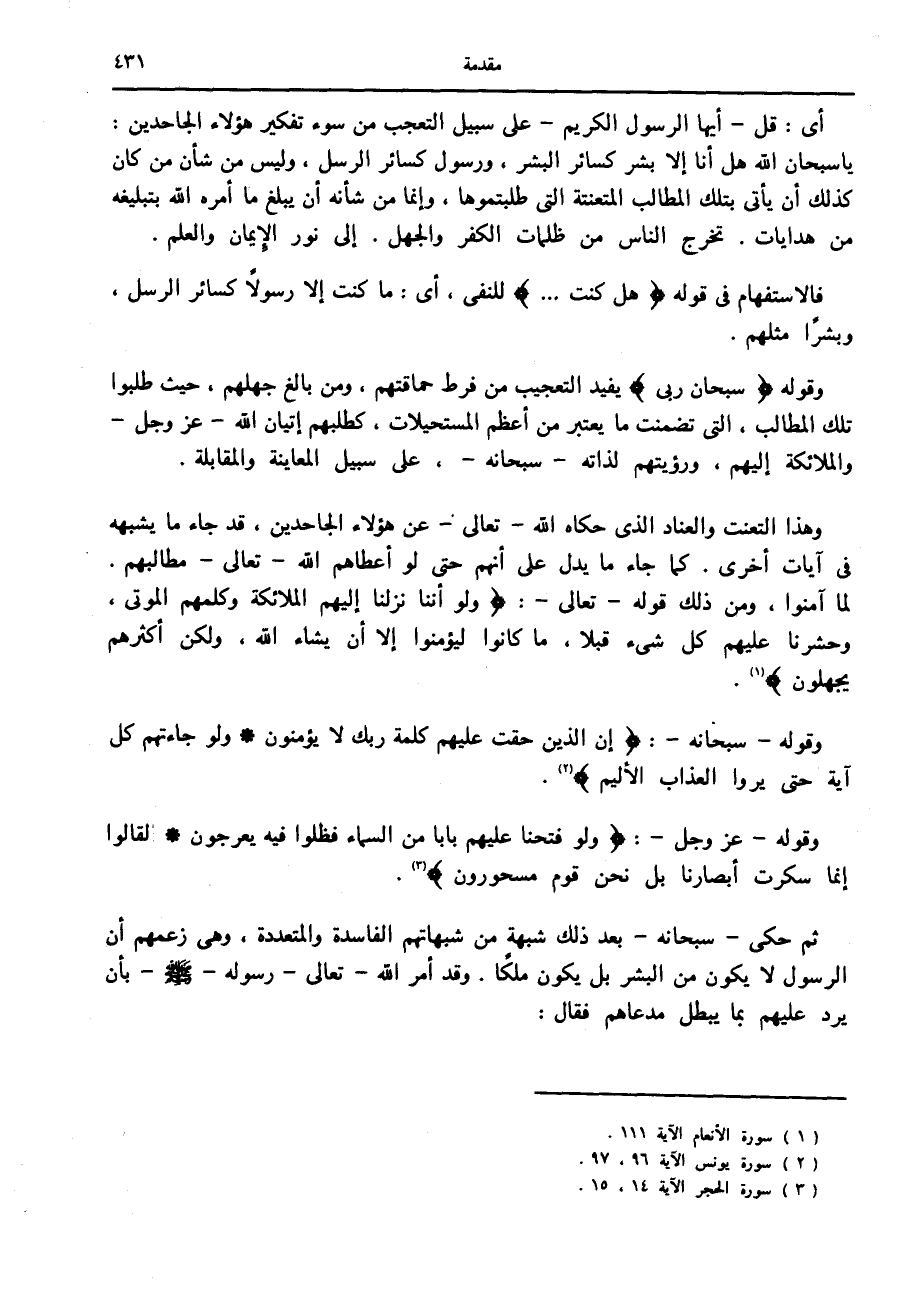 مقدمة ٤٣١
أى : قل – أيها الرسول الكريم – على سبيل التعجب من سوء تفكير هؤلاء الجاحدين :
ياسبحان الله هل أنا إلا بشر كسائر البشر ، ورسول كسائر الرسل ، وليس من شأن من كان
كذلك أن يأتى بتلك المطالب المتعنتة التى طلبتموها ، وإنما من شأنه أن يبلغ ما أمره الله بتبليغه
من هدايات . تخرج الناس من ظلمات الكفر والجهل . إلى نور الإيمان والعلم .
فالاستفهام فى قوله ﴿ هل كنت ... ﴾ للنفى ، أى : ما كنت إلا رسولاً كسائر الرسل ،
وبشرًا مثلهم .
وقوله ﴿ سبحان ربى ﴾ يفيد التعجيب من فرط حماقتهم ، ومن بالغ جهلهم ، حيث طلبوا
تلك المطالب ، التى تضمنت ما يعتبر من أعظم المستحيلات ، كطلبهم إتيان الله – عز وجل –
والملائكة إليهم ، ورؤيتهم لذاته – سبحانه – ، على سبيل المعاينة والمقابلة .
وهذا التعنت والعناد الذى حكاه الله – تعالى – عن هؤلاء الجاحدين ، قد جاء ما يشبهه
فى آيات أخرى . كما جاء ما يدل على أنهم حتى لو أعطاهم الله – تعالى – مطالبهم .
لما آمنوا ، ومن ذلك قوله – تعالى – : ﴿ ولو أننا نزلنا إليهم الملائكة وكلمهم الموتى ،
وحشرنا عليهم كل شىء قبلا ، ما كانوا ليؤمنوا إلا أن يشاء الله ، ولكن أكثرهم
يجهلون ﴾(١) .
وقوله – سبحانه – : ﴿ إن الذين حقت عليهم كلمة ربك لا يؤمنون * ولو جاءتهم كل
آية حتى يروا العذاب الأليم ﴾(٢) .
وقوله – عز وجل – : ﴿ ولو فتحنا عليهم بابا من السماء فظلوا فيه يعرجون * لقالوا
إنما سكرت أبصارنا بل نحن قوم مسحورون ﴾(٣) .
ثم حكى – سبحانه – بعد ذلك شبهة من شبهاتهم الفاسدة والمتعددة ، وهى زعمهم أن
الرسول لا يكون من البشر بل يكون ملكًا . وقد أمر الله – تعالى – رسوله – ﷺ – بأن
يرد عليهم بما يبطل مدعاهم فقال :
( ١ ) سورة الأنعام الآية ١١١ .
( ٢ ) سورة يونس الآية ٩٦ ، ٩٧ .
( ٣ ) سورة الحجر الآية ١٤ ، ١٥ .